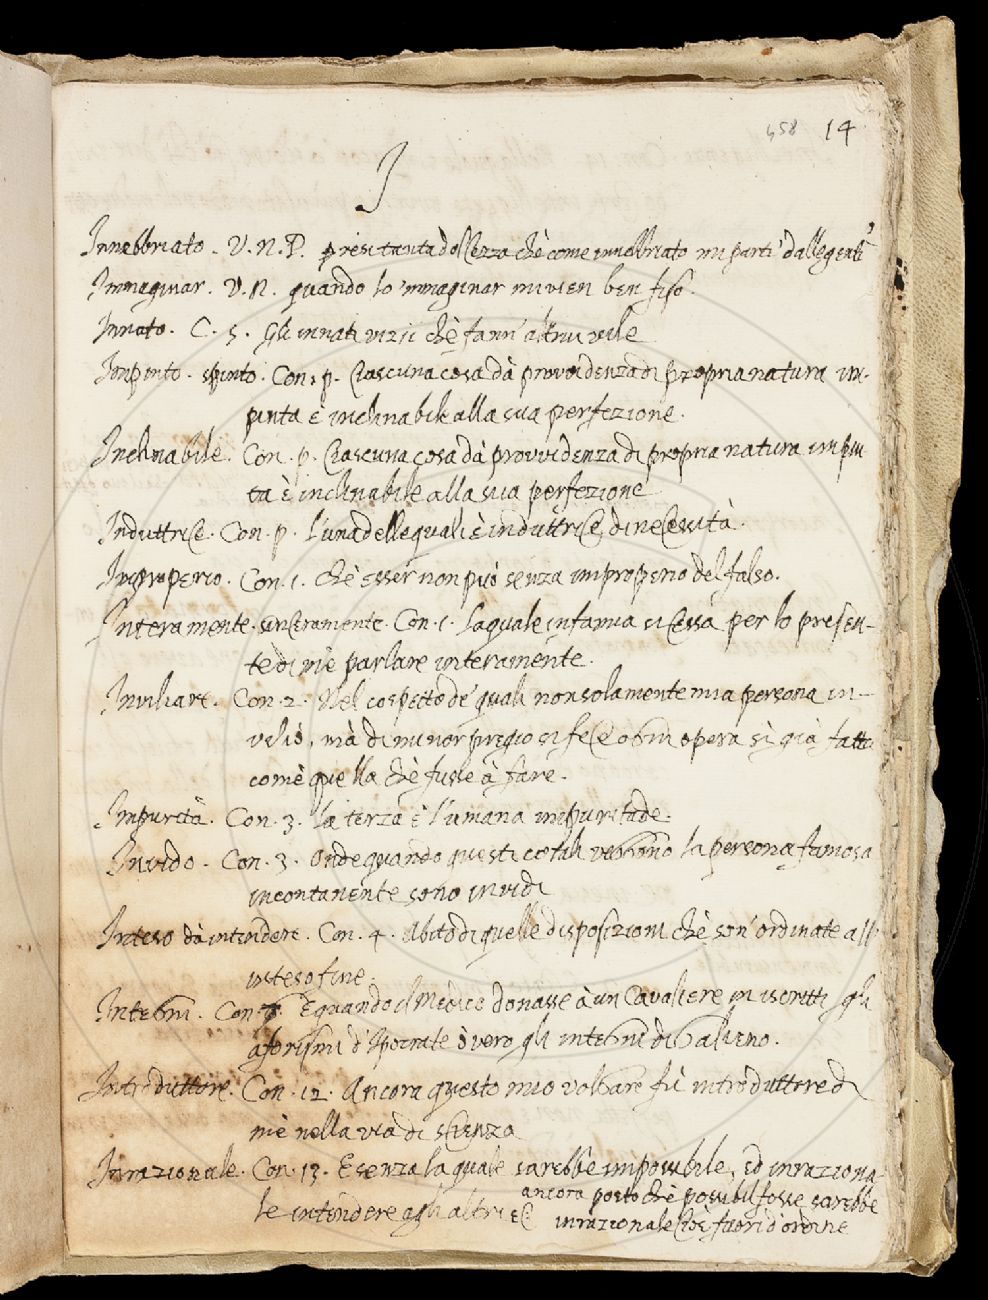 458 14
I
Innebbriato. V. N. P. presi tanta dolcezza chè come innebbriato mi parti' dalle genti
Immaginar. V. N. quando lo 'mmaginar mi vien ben fiso.
Innato. C. 5. Gli innati vizii chè fann' altrui vile
Impinto. spinto. Con. p. Ciascuna cosa dà provvidenza di propria natura im-
pinta è inclinabile alla sua perfezione.
Inclinabile. Con. p. Ciascuna cosa dà provvidenza di propria natura impin
ta è inclinabile alla sua perfezione
Induttrice. Con. p. l'una delle quali è induttrice di necessità.
Improperio. Con. 1. chè esser non può senza improperio del falso.
Interamente. sinceramente. Con. 1. la quale infamia si cessa per lo presen-
te di mè parlare interamente.
Inviliare. Con. 2. Nel cospetto de' quali non solamente mia persona in-
vilió, mà di minor pregio si fece ogni opera sì già fatta
comè quella chè fusse à fare.
Impurità. Con. 3. la terza è l'umana impuritade.
Invido. Con. 3. onde quando questi cotali veggiono la persona famosa
incontanente sono invidi
Inteso dà intendere. Con. 4. Abito di quelle disposizioni chè son' ordinate all'
inteso fine.
Integni. Con. 7. E quando il Medico donasse à un Cavaliere iniscritti gli
aforismi d'Ipocrate òvero gli integni di Galieno.
Introduttore. Con. 12. Ancora questo mio volgare fù introduttore di
mè nella via di scienza
Inrazionale. Con. 13. E senza la quale sarebbe impossibile, ed inraziona-
le intendere agli altri &c ancora posto chè possibil fosse sarebbe
inrazionale cioè fuori d'ordine